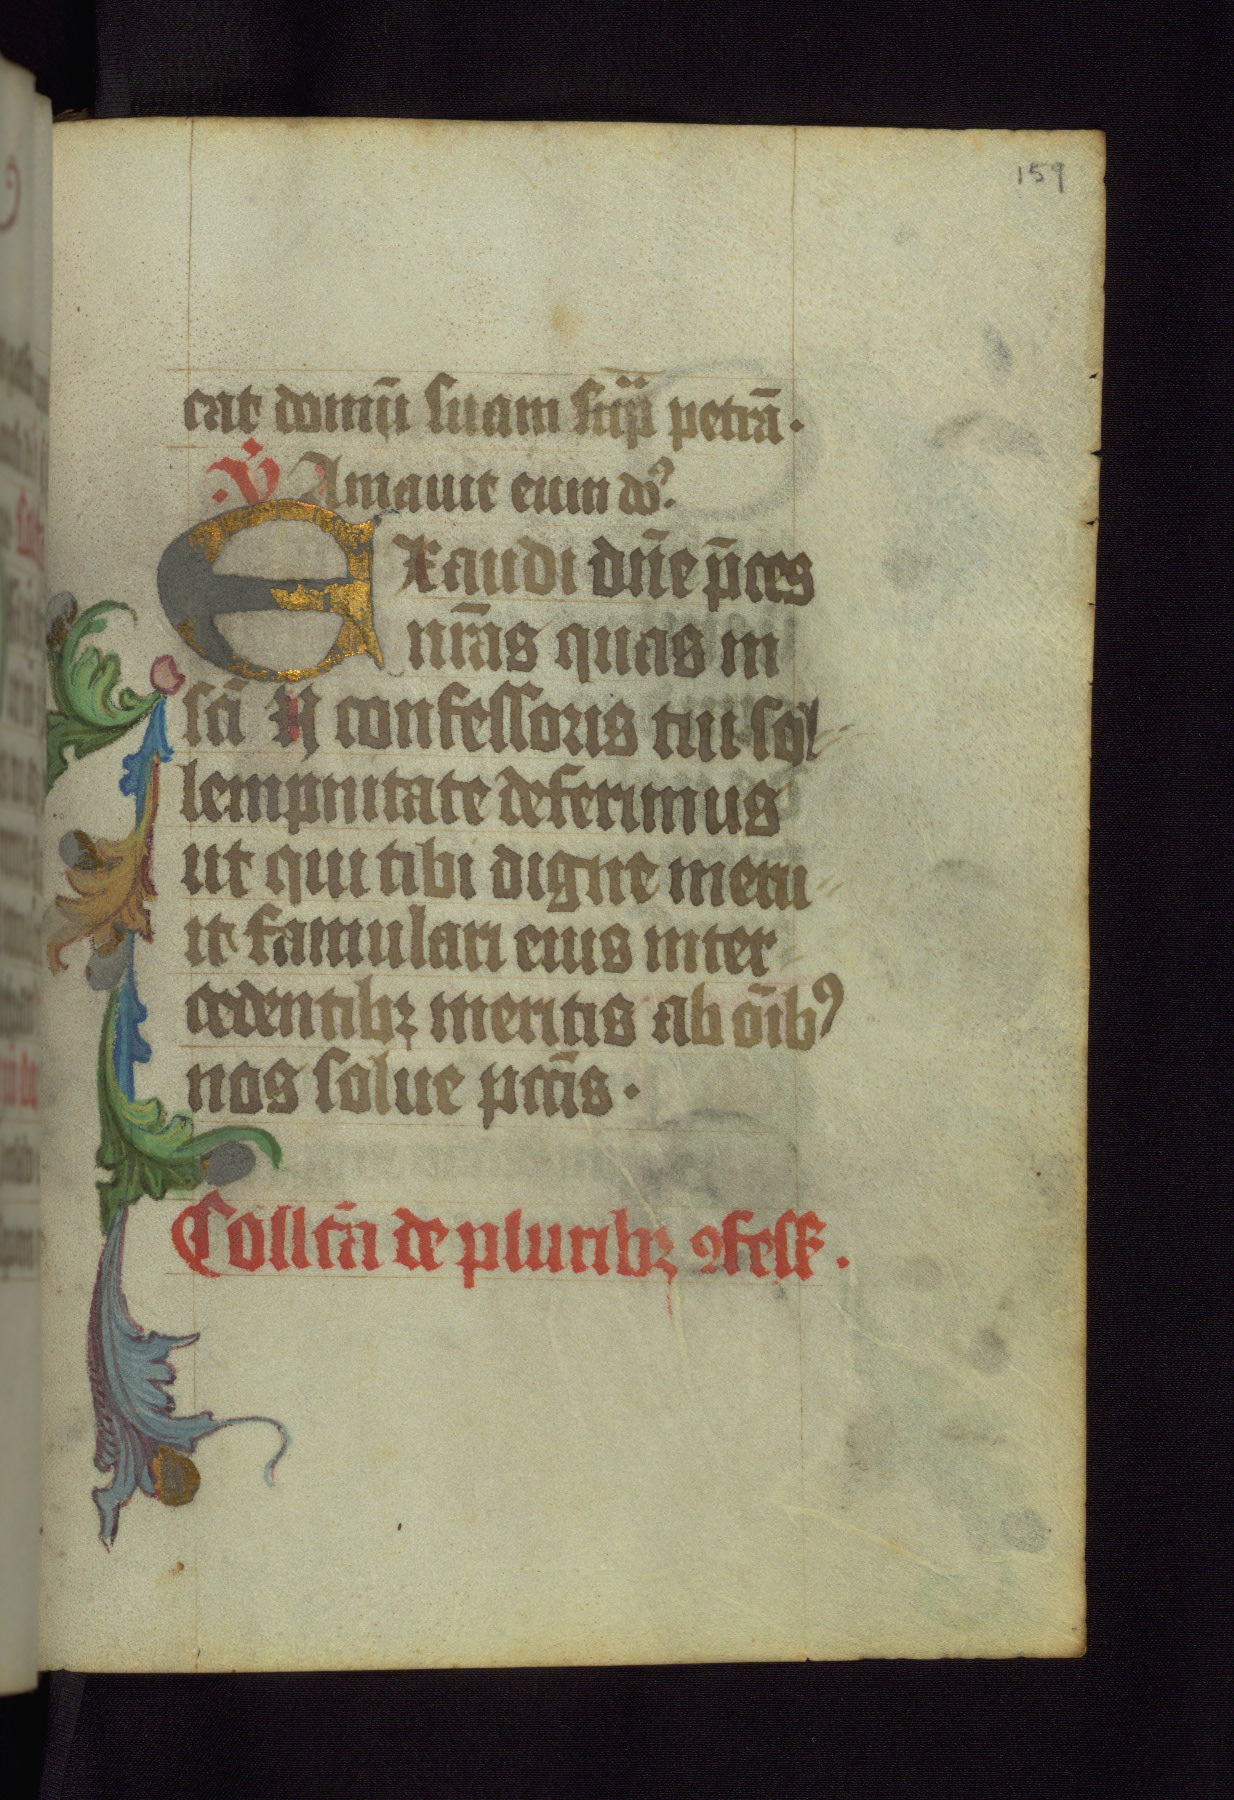 159
cat domū suam sup̄ petrā.
.v̄. Amauit eum do⁹.
Exaudi dn̄e p̄ces
nr̄as quas in
sc̄i N confessoris tui sol
lempnitate deferimus
ut qui tibi digne meru
it famulari eius inter
cedentibꝫ meritis ab oīb⁹
nos solue pctīs.
Collcт̄a de pluribꝫ ꝯfess.